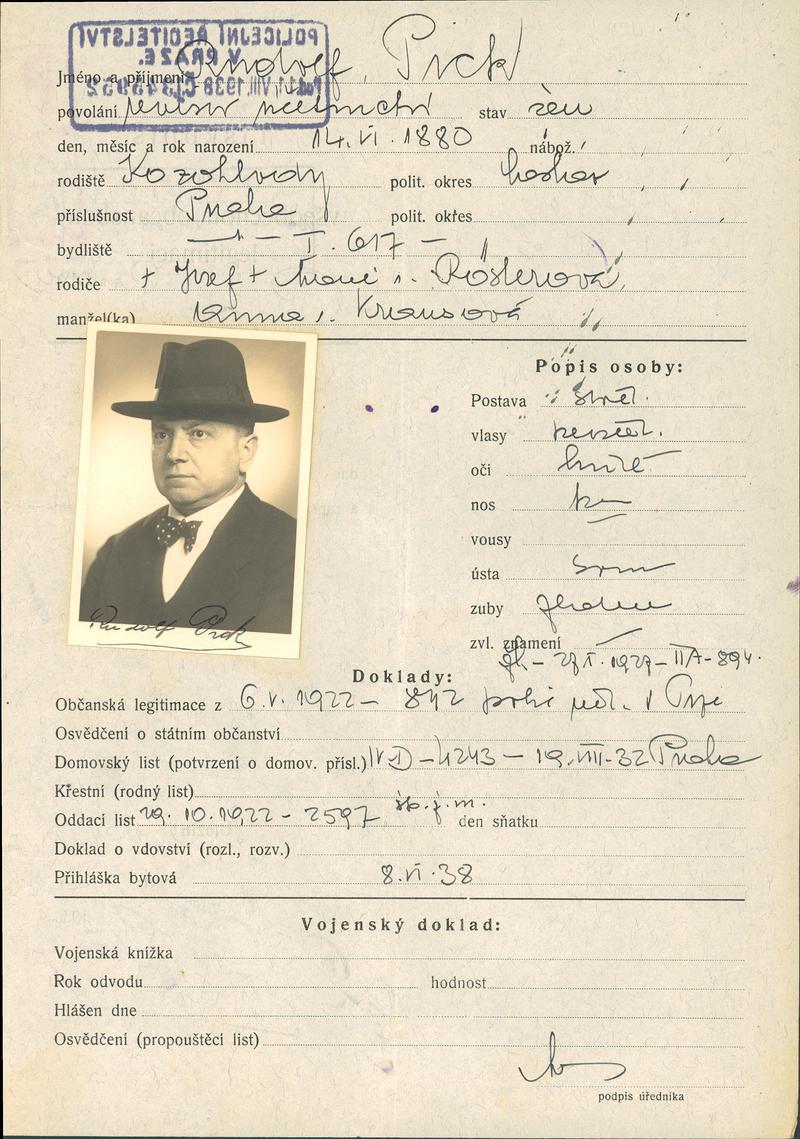 POLICEJNÍ ŘEDITELSTVÍ
V PRAZE.
VIII. 1938
Jméno a příjmení Rudolf Pick
povolání revisor účetnictví stav žen
den, měsíc a rok narození 14. VI. 1880 nábož.
rodiště Kozohlody polit. okres
příslušnost Praha polit. okres
bydliště I. 617 –
rodiče + Josef + Marie r. Röslerová,
manžel(ka) Anna r. Krausová
Popis osoby:
Postava střed.
vlasy
oči hnědé
nos
vousy
ústa
zuby
zvl. znamení
27 X. 1927 – II A – 894.
Rudolf Pick
Doklady:
Občanská legitimace z 6. V. 1922 – 842 polic řed. v Praze
Osvědčení o státním občanství
Domovský list (potvrzení o domov. přísl.) IV D – 4243 – 19. VIII – 32 Praha
Křestní (rodný list)
Oddací list 29. 10. 1922 – 2597 den sňatku
Doklad o vdovství (rozl., rozv.)
Přihláška bytová 8. VI. 38
Vojenský doklad:
Vojenská knížka
Rok odvodu hodnost
Hlášen dne
Osvědčení (propouštěcí list)
podpis úředníka